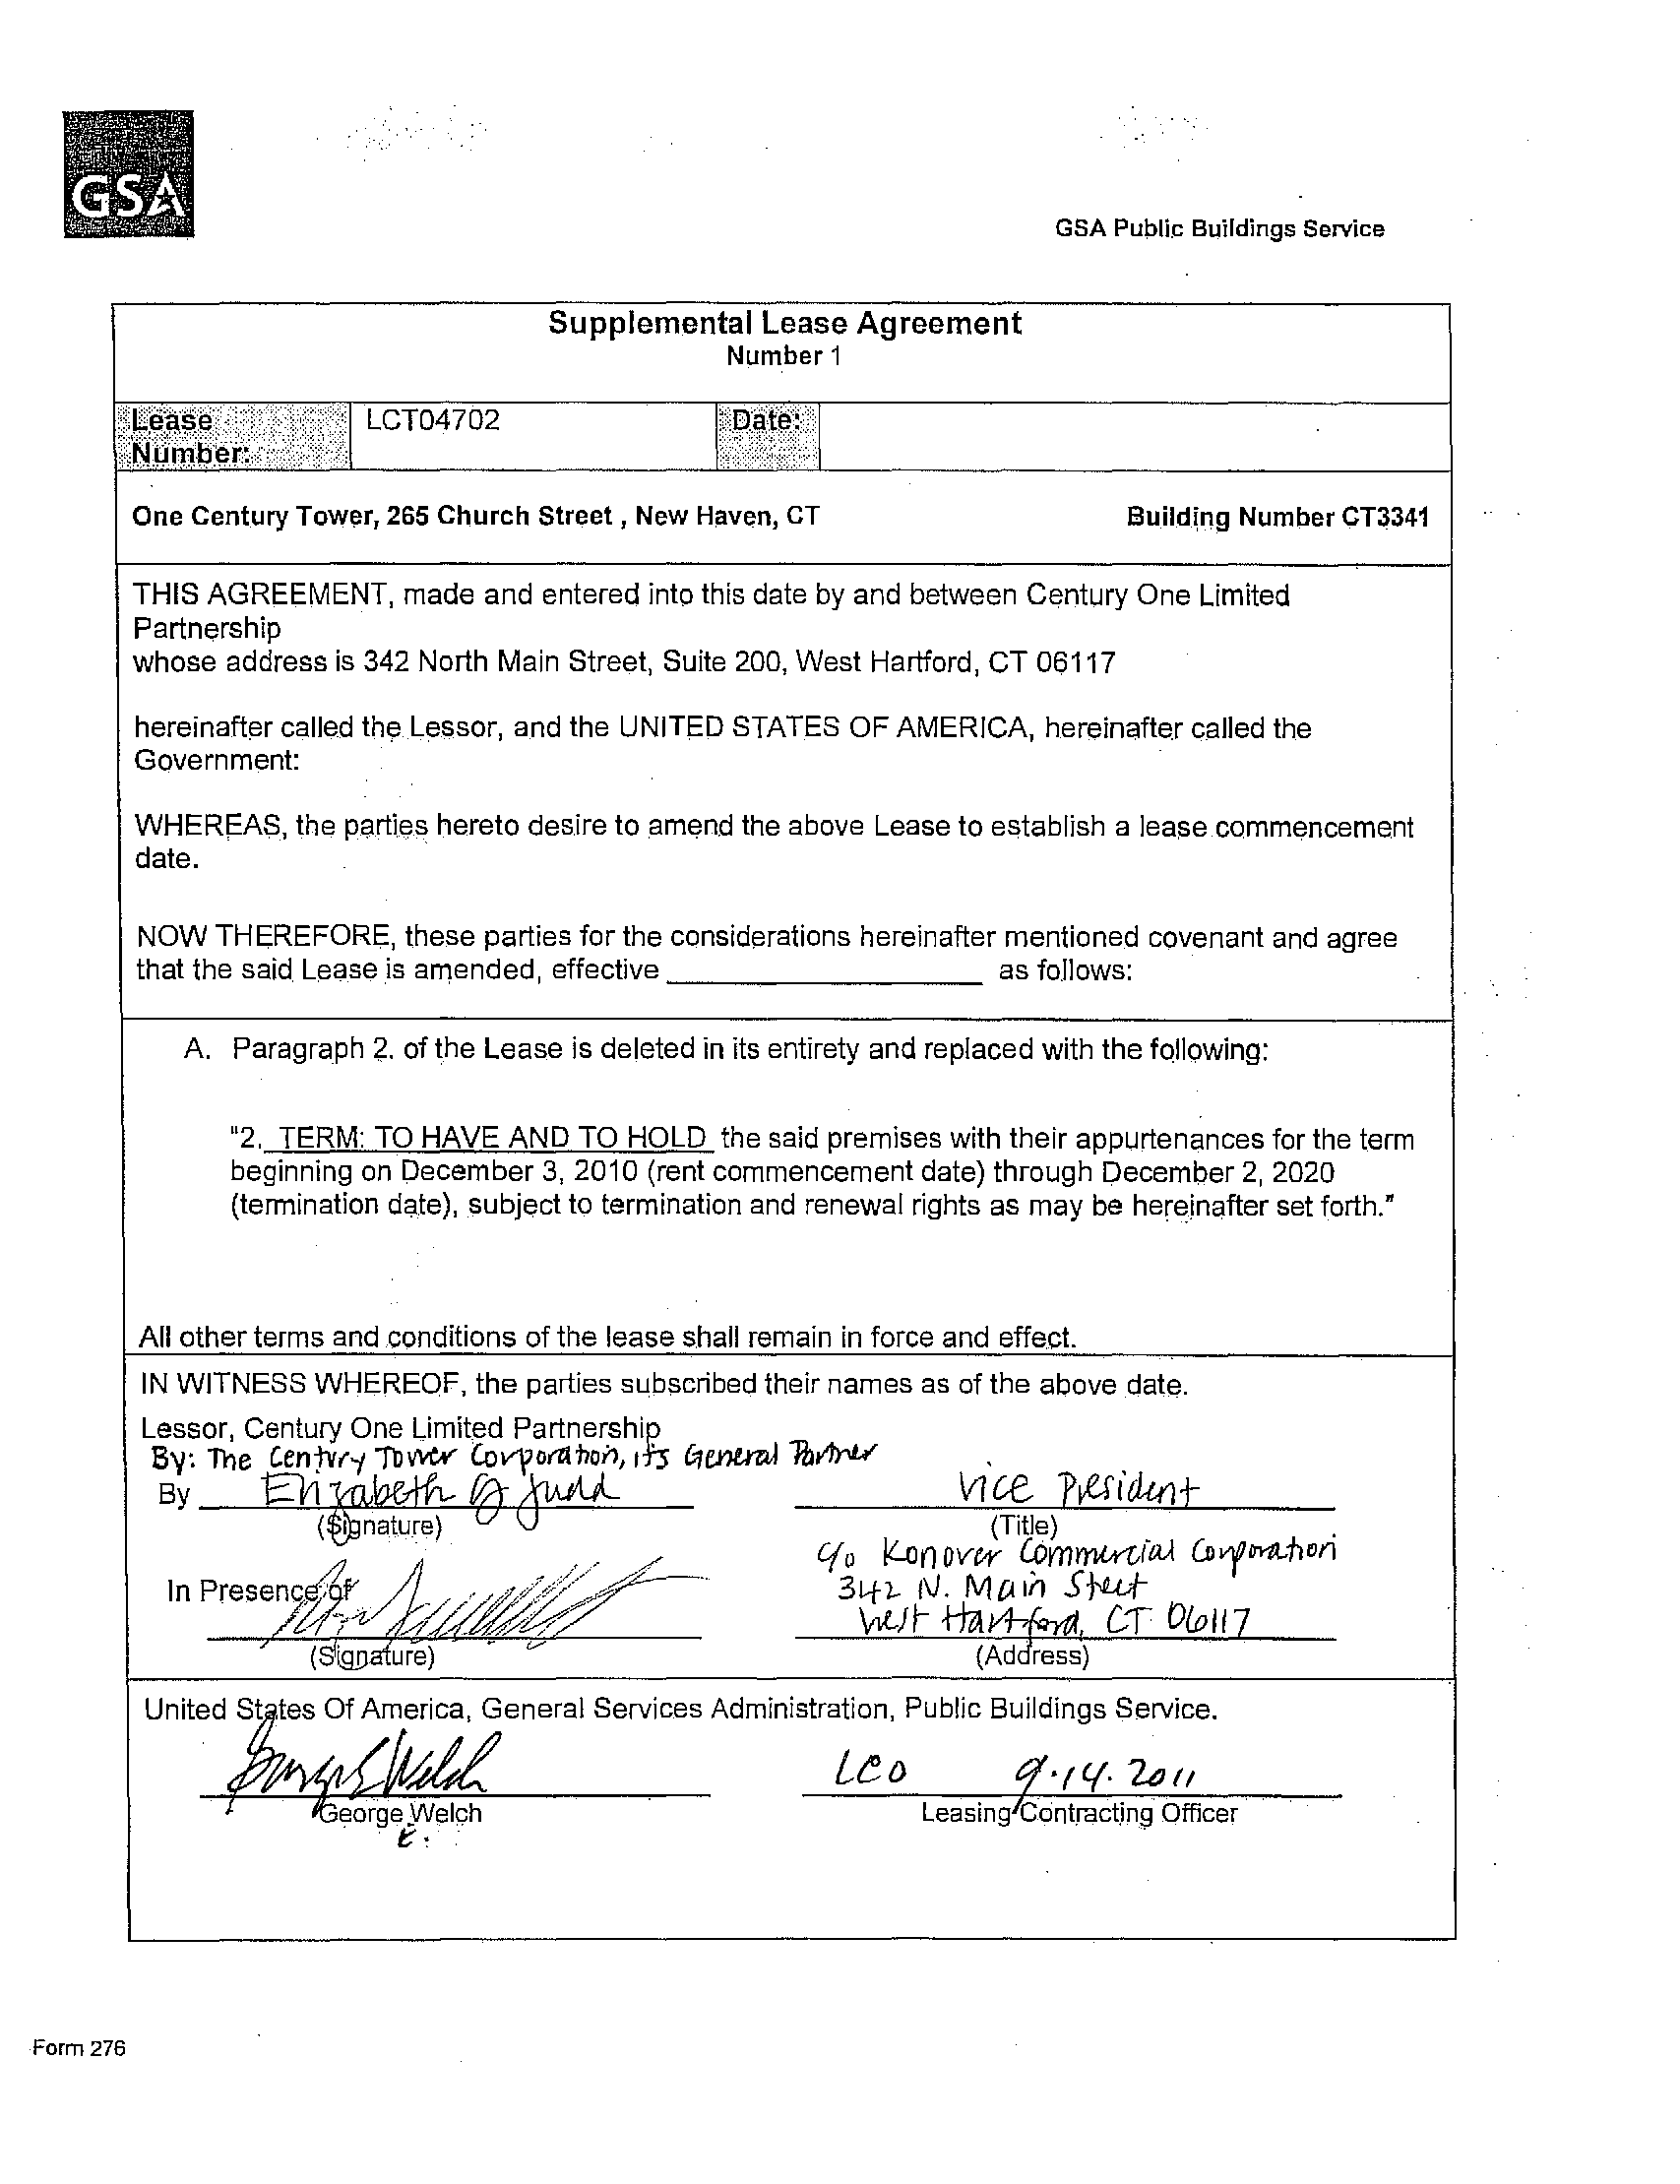 GSA
GSA Public Buildings Service
Supplemental Lease Agreement
Number 1
Lease Number: LCT04702 Date:
One Century Tower, 265 Church Street , New Haven, CT Building Number CT3341
THIS AGREEMENT, made and entered into this date by and between Century One Limited
Partnership
whose address is 342 North Main Street, Suite 200, West Hartford, CT 06117
hereinafter called the Lessor, and the UNITED STATES OF AMERICA, hereinafter called the
Government:
WHEREAS, the parties hereto desire to amend the above Lease to establish a lease commencement
date.
NOW THEREFORE, these parties for the considerations hereinafter mentioned covenant and agree
that the said Lease is amended, effective as follows:
A. Paragraph 2. of the Lease is deleted in its entirety and replaced with the following:
"2. TERM: TO HAVE AND TO HOLD the said premises with their appurtenances for the term
beginning on December 3, 2010 (rent commencement date) through December 2, 2020
(termination date), subject to termination and renewal rights as may be hereinafter set forth."
All other terms and conditions of the lease shall remain in force and effect.
IN WITNESS WHEREOF, the parties subscribed their names as of the above date.
Lessor, Century One Limited Partnership
By: The Century Tower Corporation, its General Partner
By Elizabeth J Judd Vice President
(Signature) (Title)
c/o Konover Commercial Corporation
In Presence of 342 N. Main Street
West Hartford, CT 06117
(Signature) (Address)
United States Of America, General Services Administration, Public Buildings Service.
George E Welch LCO 9.14.2011
George Welch Leasing Contracting Officer
E.
Form 276